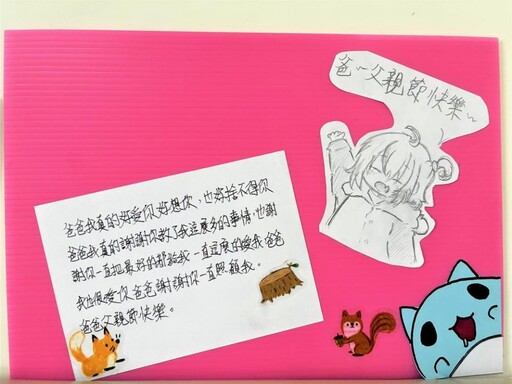 爸~父親節快樂~
爸爸我真的好愛你、好想你、也好捨不得你
爸爸我真的謝謝你教了我這麼多的事情,也謝
謝你一直把最好的都給我一直這麼的愛我爸爸
我也很愛你爸爸謝謝你一直照顧我。
爸爸父親節快樂。